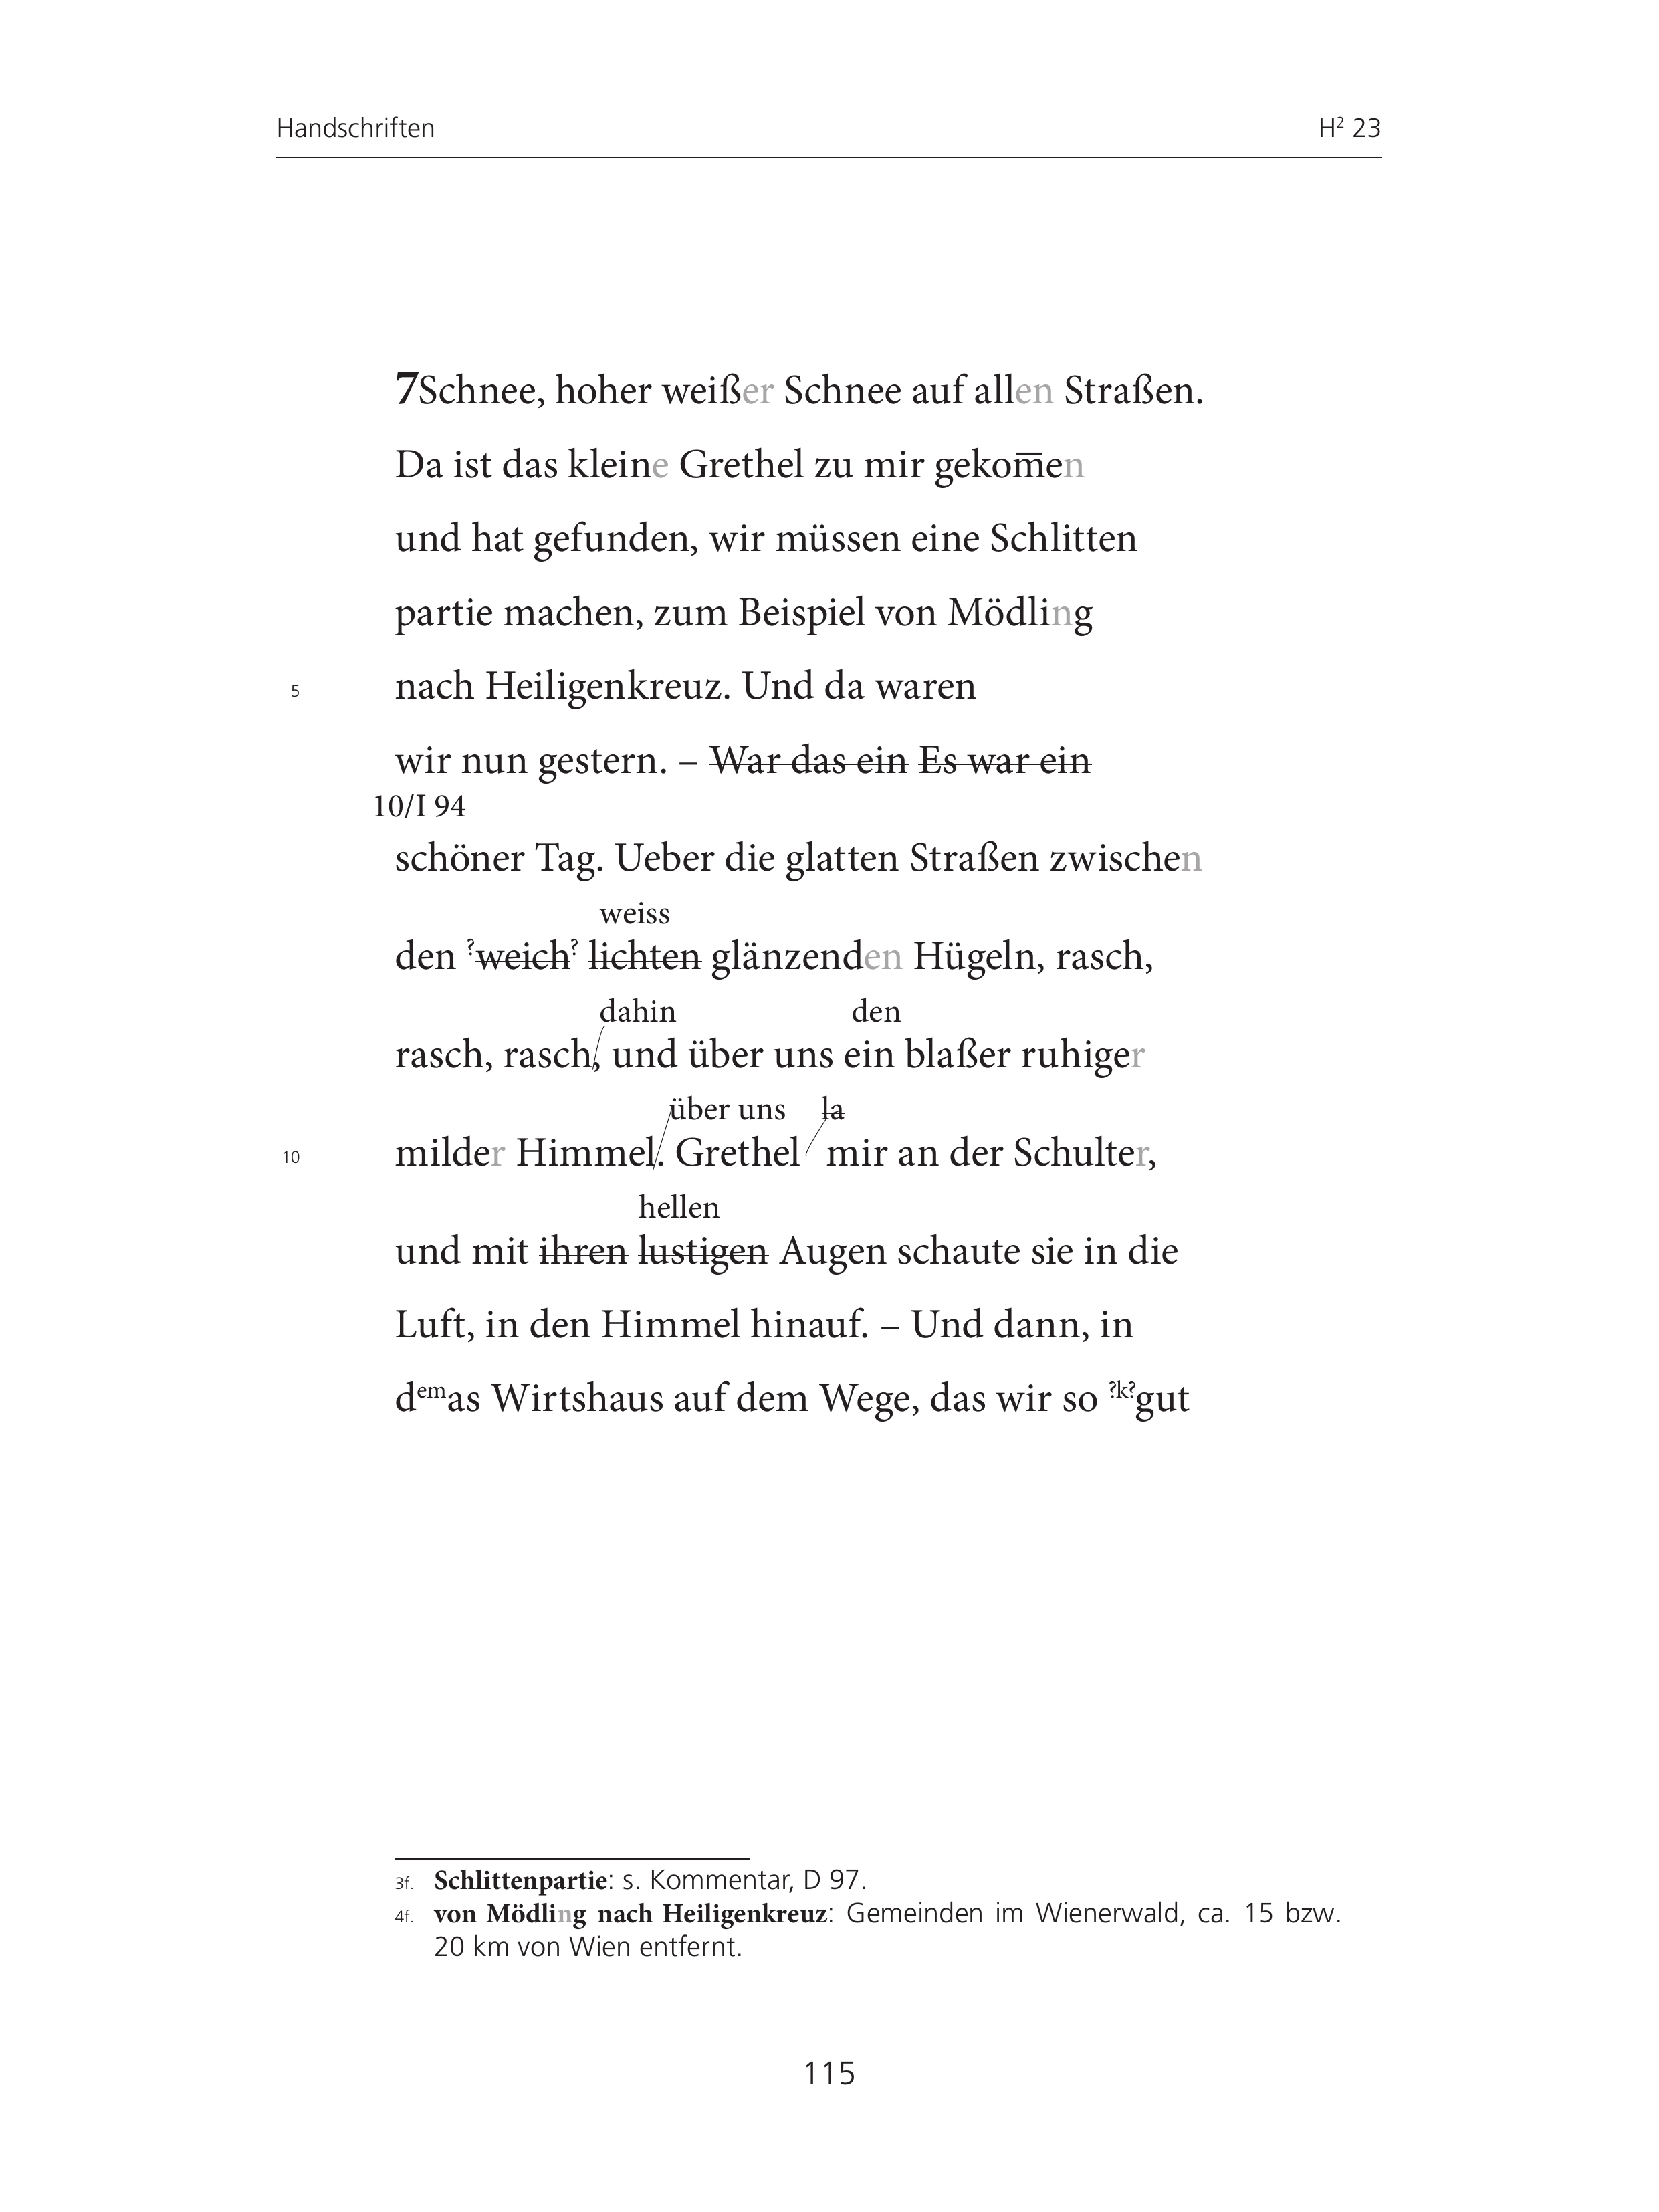 Handschriften H² 23
7Schnee, hoher weißer Schnee auf allen Straßen.
Da ist das kleine Grethel zu mir gekom̅en
und hat gefunden, wir müssen eine Schlitten
partie machen, zum Beispiel von Mödling
5 nach Heiligenkreuz. Und da waren
wir nun gestern. – War das ein Es war ein
10/I 94
schöner Tag. Ueber die glatten Straßen zwischen
weiss
den ?weich? lichten glänzenden Hügeln, rasch,
dahin den
rasch, rasch, und über uns ein blaßer ruhiger
über uns la
10 milder Himmel. Grethel mir an der Schulter,
hellen
und mit ihren lustigen Augen schaute sie in die
Luft, in den Himmel hinauf. – Und dann, in
demas Wirtshaus auf dem Wege, das wir so ?k?gut
3f. Schlittenpartie: s. Kommentar, D 97.
4f. von Mödling nach Heiligenkreuz: Gemeinden im Wienerwald, ca. 15 bzw.
20 km von Wien entfernt.
115